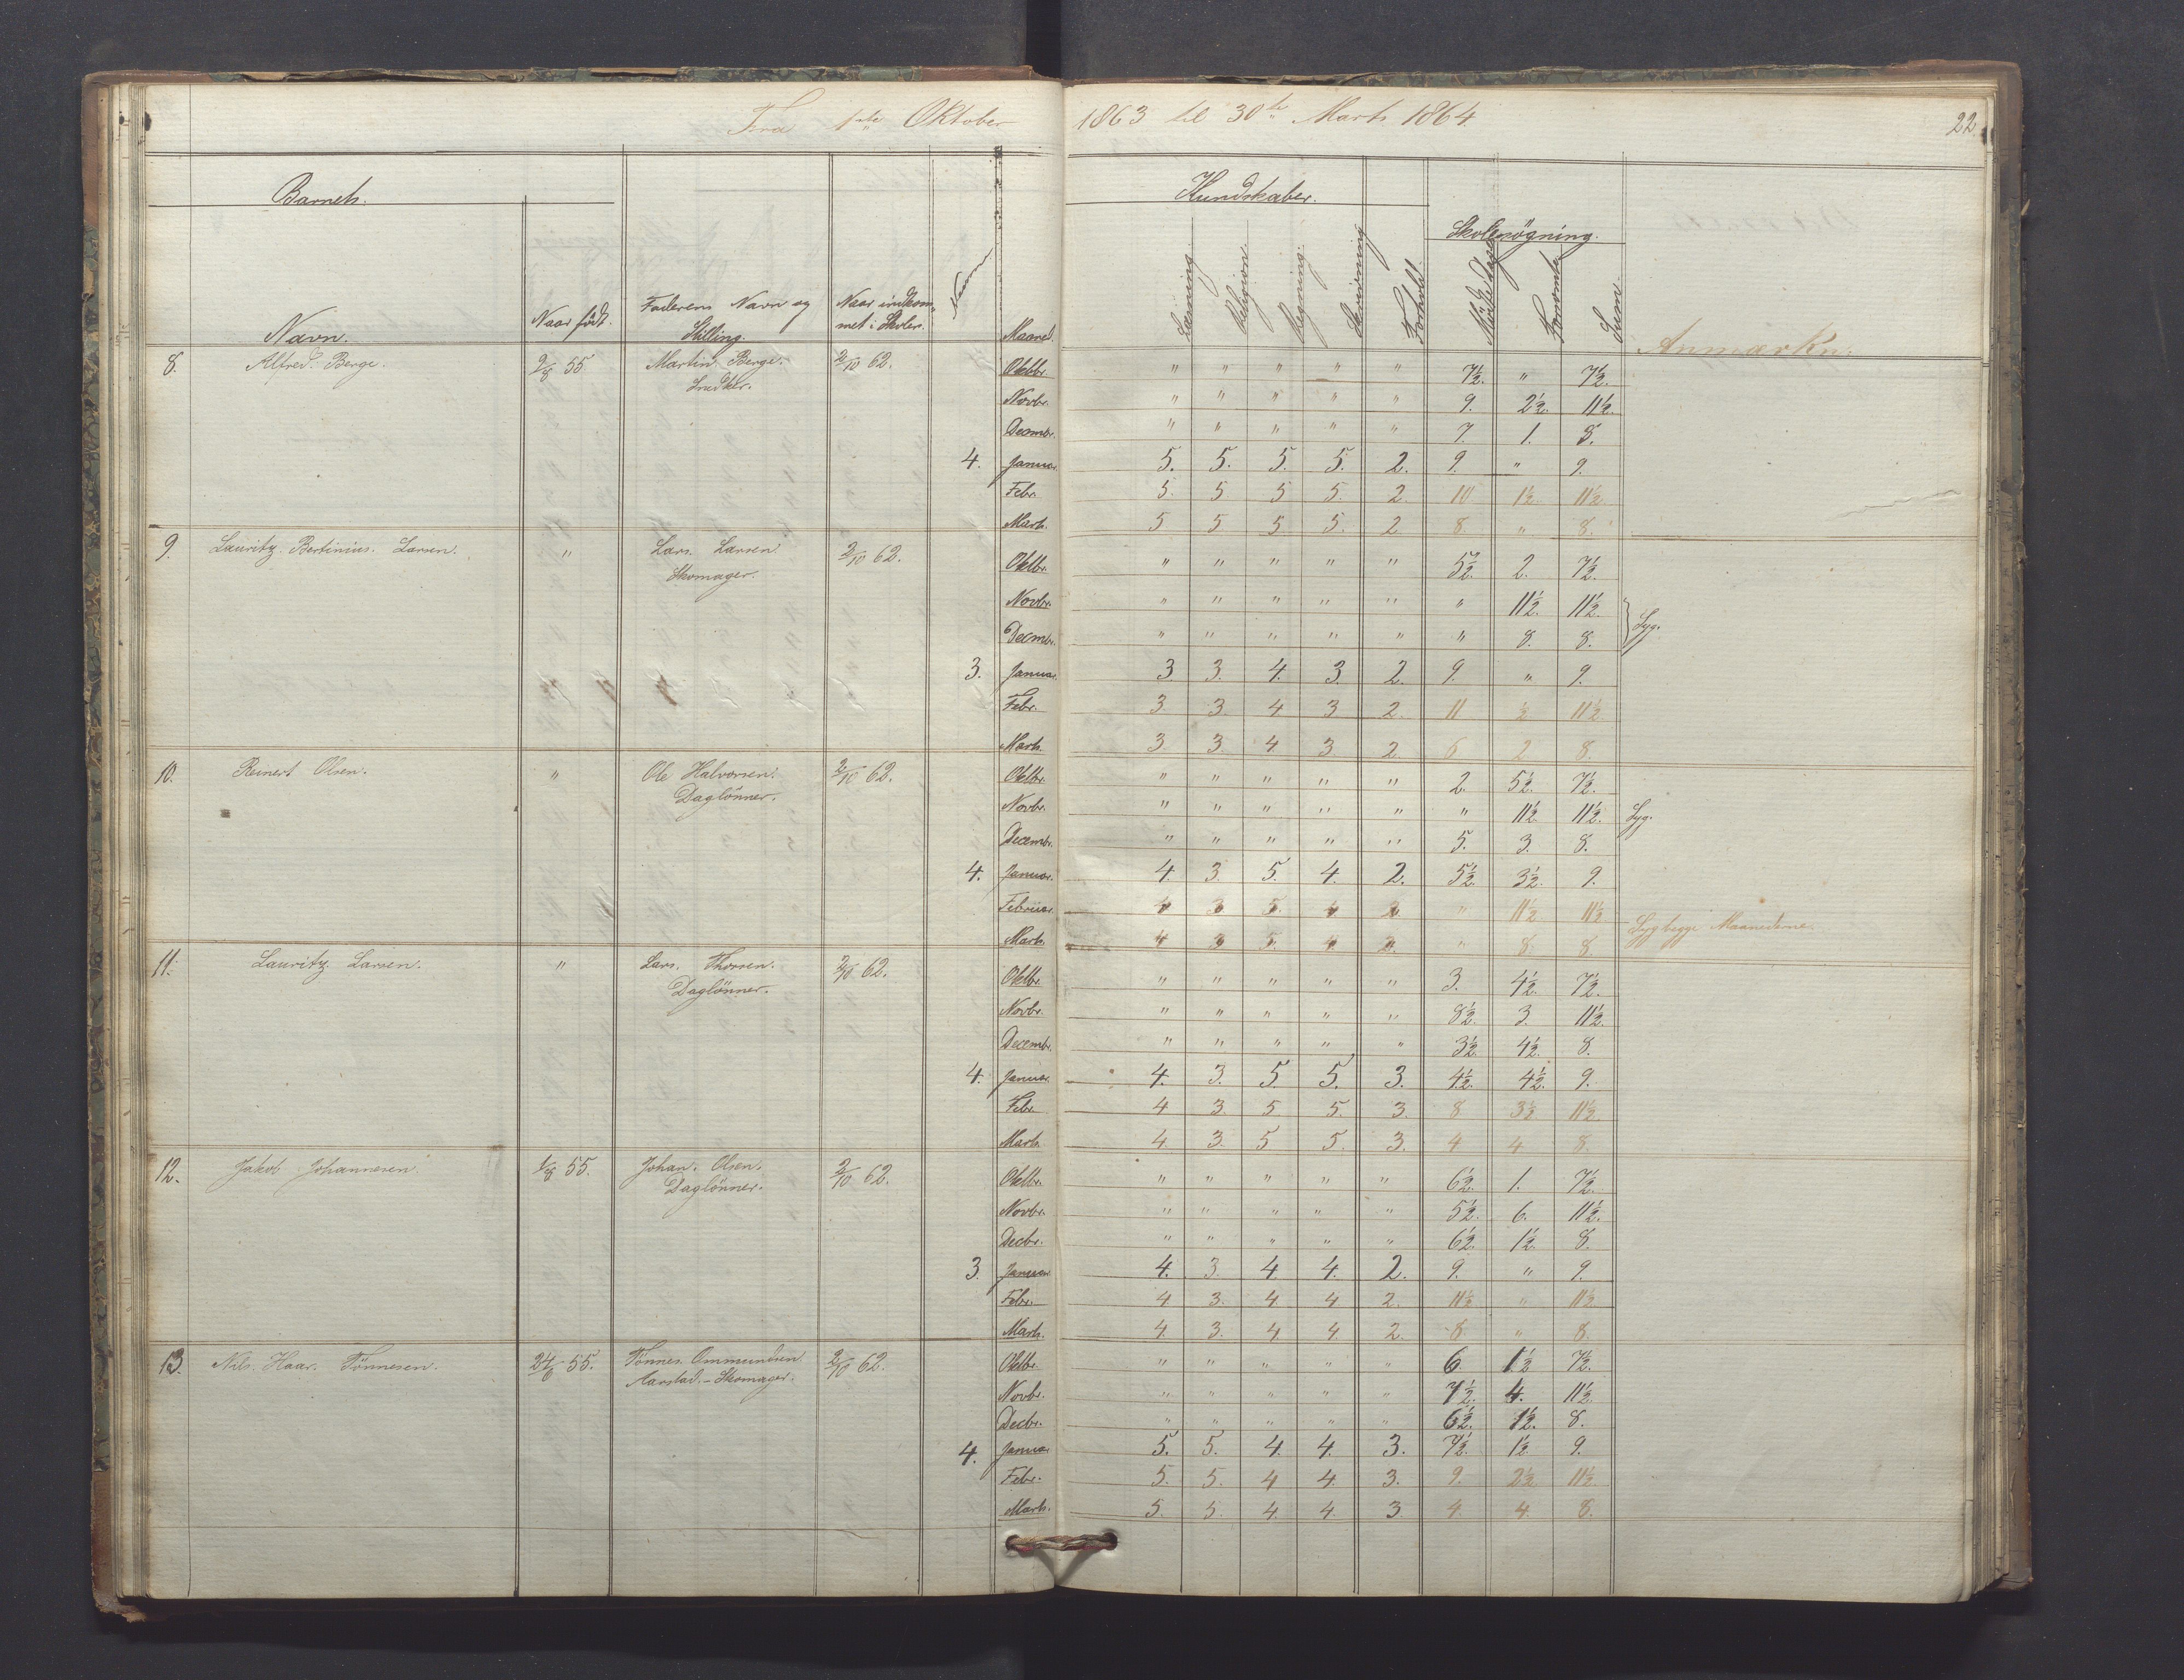 Fra 1ste Oktober 1863 til 30te Marts 1864.
22
Barnets.
Kundskaber.
Skolesøgning.
Navn.
Naar født.
Faderens Navn og Stilling.
Naar indkommet i Skolen.
Maaned.
Læsning.
Religion.
Regning.
Skrivning
Forhold.
Mødte Dage
Forsømte
Sum.
Anmærkn.
8. Alfred. Berge. 2/8 55 Martin Berge. 2/10 62. Oktbr. " " " " " 7½. " 7½.
Snedker.
Novbr. " " " " " 9. 2½. 11½.
Decmbr. " " " " " 7. 1. 8.
4. Januar. 5. 5. 5. 5. 2. 9. " 9.
Febr. 5. 5 5 5. 2. 10 1½. 11½.
Marts. 5 5 5 5. 2 8. " 8.
9. Lauritz. Bertinius. Larsen. " Lars. Larsen 2/10 62. Oktbr. " " " " " 5½. 2. 7½.
Skomager.
Novbr. " " " " " " 11½. 11½. Syg.
Decmbr. " " " " " " 8. 8.
3. Januar. 3 3. 4. 3. 2. 9. " 9.
Febr. 3. 3. 4 3 2. 11 ½ 11½
Marts. 3 3. 4 3 2. 6 2 8.
10. Reinert Olsen. " Ole Halvorsen. 2/10 62. Oktbr. " " " " " 2. 5½. 7½.
Daglønner.
Novbr. " " " " " " 11½ 11½. Syg.
Decembr. " " " " " 5. 3. 8.
4. Januar. 4. 3. 5. 4. 2. 5½. 3½. 9.
Februar. 4 3. 5. 4 2. " 11½ 11½
Syg begge Maanederne.
Marts. 4 3 5. 4 2. " 8. 8.
11. Lauritz. Larsen. " Lars. Thorsen. 2/10 62. Oktbr. " " " " " 3. 4½. 7½.
Daglønner.
Novbr. " " " " " 8½. 3. 11½.
Decembr. " " " " " 3½. 4½. 8.
4. Januar. 4. 3. 5. 5. 3. 4½. 4½. 9.
Febr. 4 3. 5 5. 3. 8 3½ 11½.
Marts. 4. 3. 5 5. 3. 4 4 8.
12. Jakob Johannesen. 1/8 55. Johan. Olsen. 2/10 62. Oktbr. " " " " " 6½. 1. 7½.
Daglønner.
Novbr. " " " " " 5½. 6. 11½.
Decbr. " " " " " 6½. 1½. 8.
3. Januar 4. 3. 4 4. 2. 9. " 9.
Febr. 4. 3. 4. 4 2. 11½ " 11½
Marts. 4. 3. 4. 4. 2. 8. " 8.
13. Nils. Haar. Tønnesen. 24/6 55. Tønnes. Ommundsen 2/10 62. Oktbr. " " " " " 6. 1½ 7½.
Aarstad. - Skomager.
Novbr. " " " " " 7½. 4. 11½.
Decbr. " " " " " 6½. 1½. 8.
4. Januar 5. 5. 4. 4. 3. 7½. 1½. 9.
Febr. 5. 5. 4 4. 3. 9. 2½ 11½
Marts. 5. 5. 4. 4. 3 4. 4. 8.